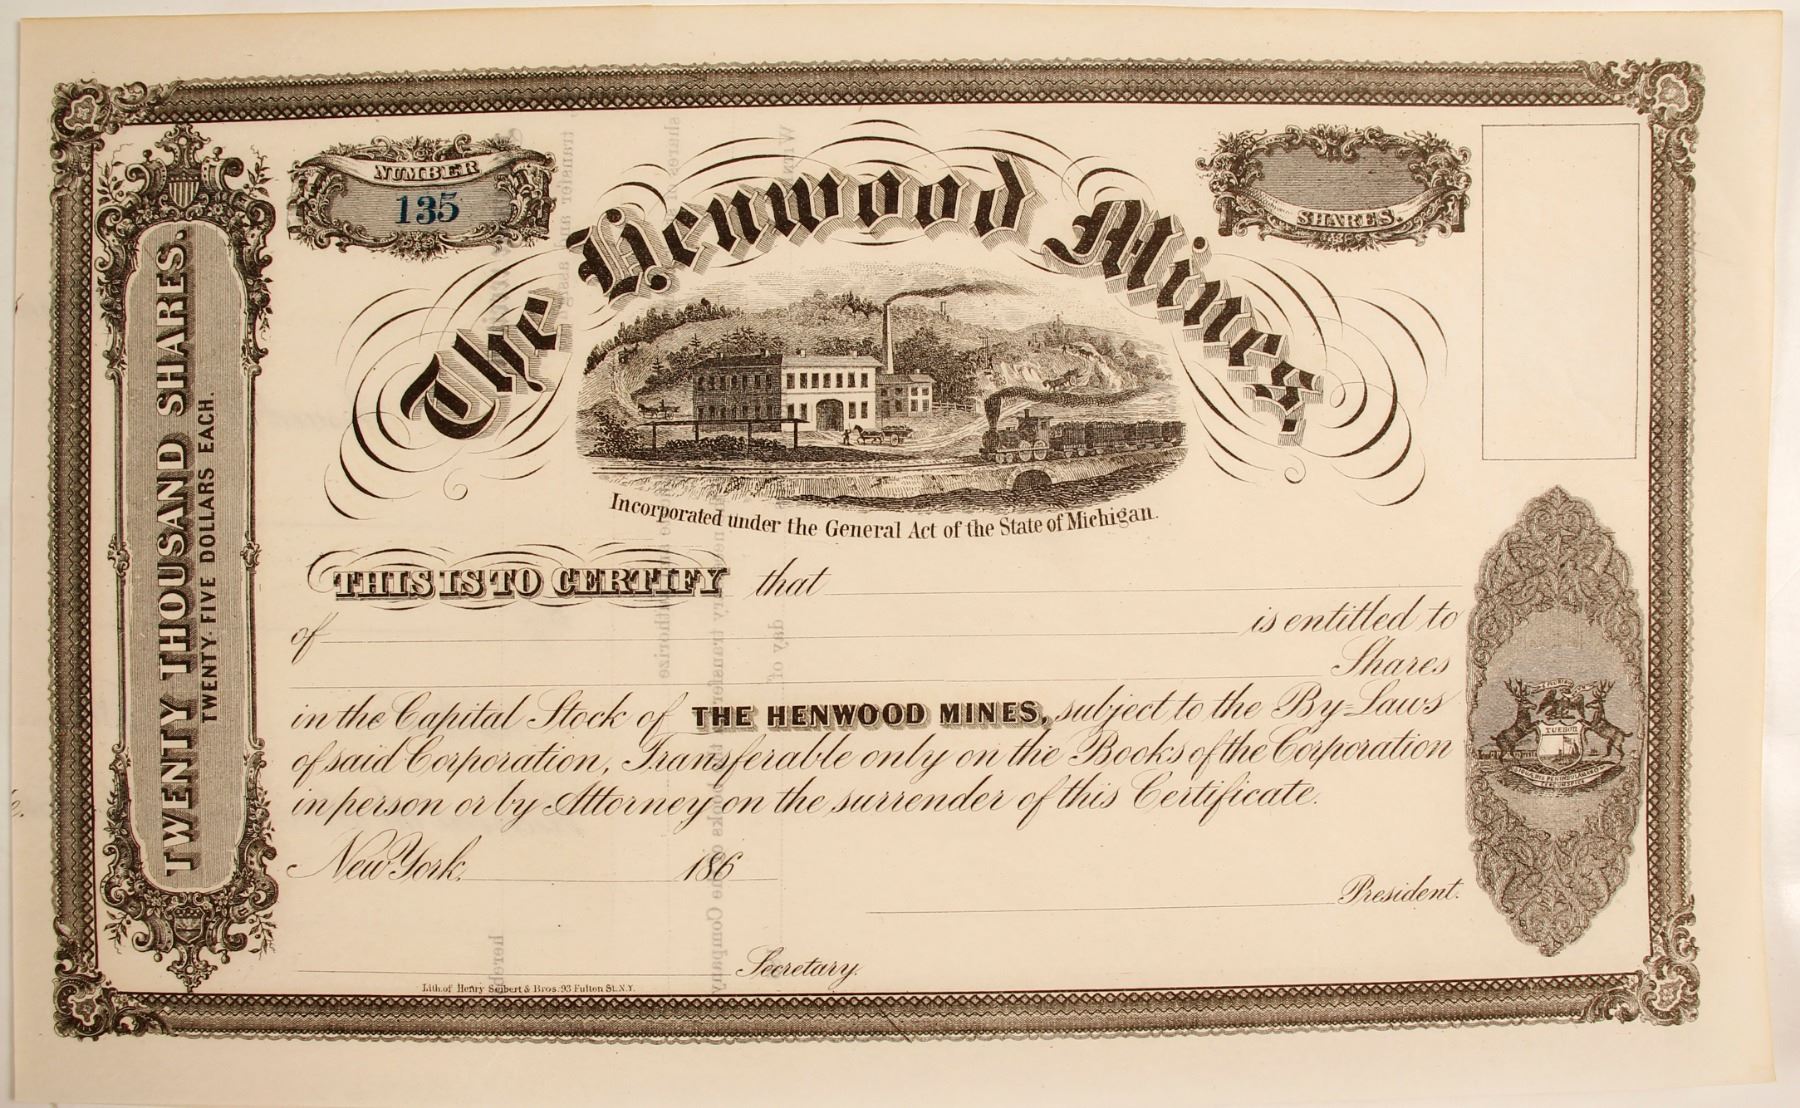 NUMBER
135
The Henwood Mines
SHARES.
TWENTY THOUSAND SHARES.
TWENTY-FIVE DOLLARS EACH.
Incorporated under the General Act of the State of Michigan.
THIS IS TO CERTIFY that
of is entitled to
Shares
in the Capital Stock of THE HENWOOD MINES, subject to the By-Laws
of said Corporation, Transferable only on the Books of the Corporation
in person or by Attorney on the surrender of this Certificate.
New York, 186
President.
Secretary.
Lith. of Henry Seibert & Bros. 93 Fulton St. N.Y.
TUEBOR